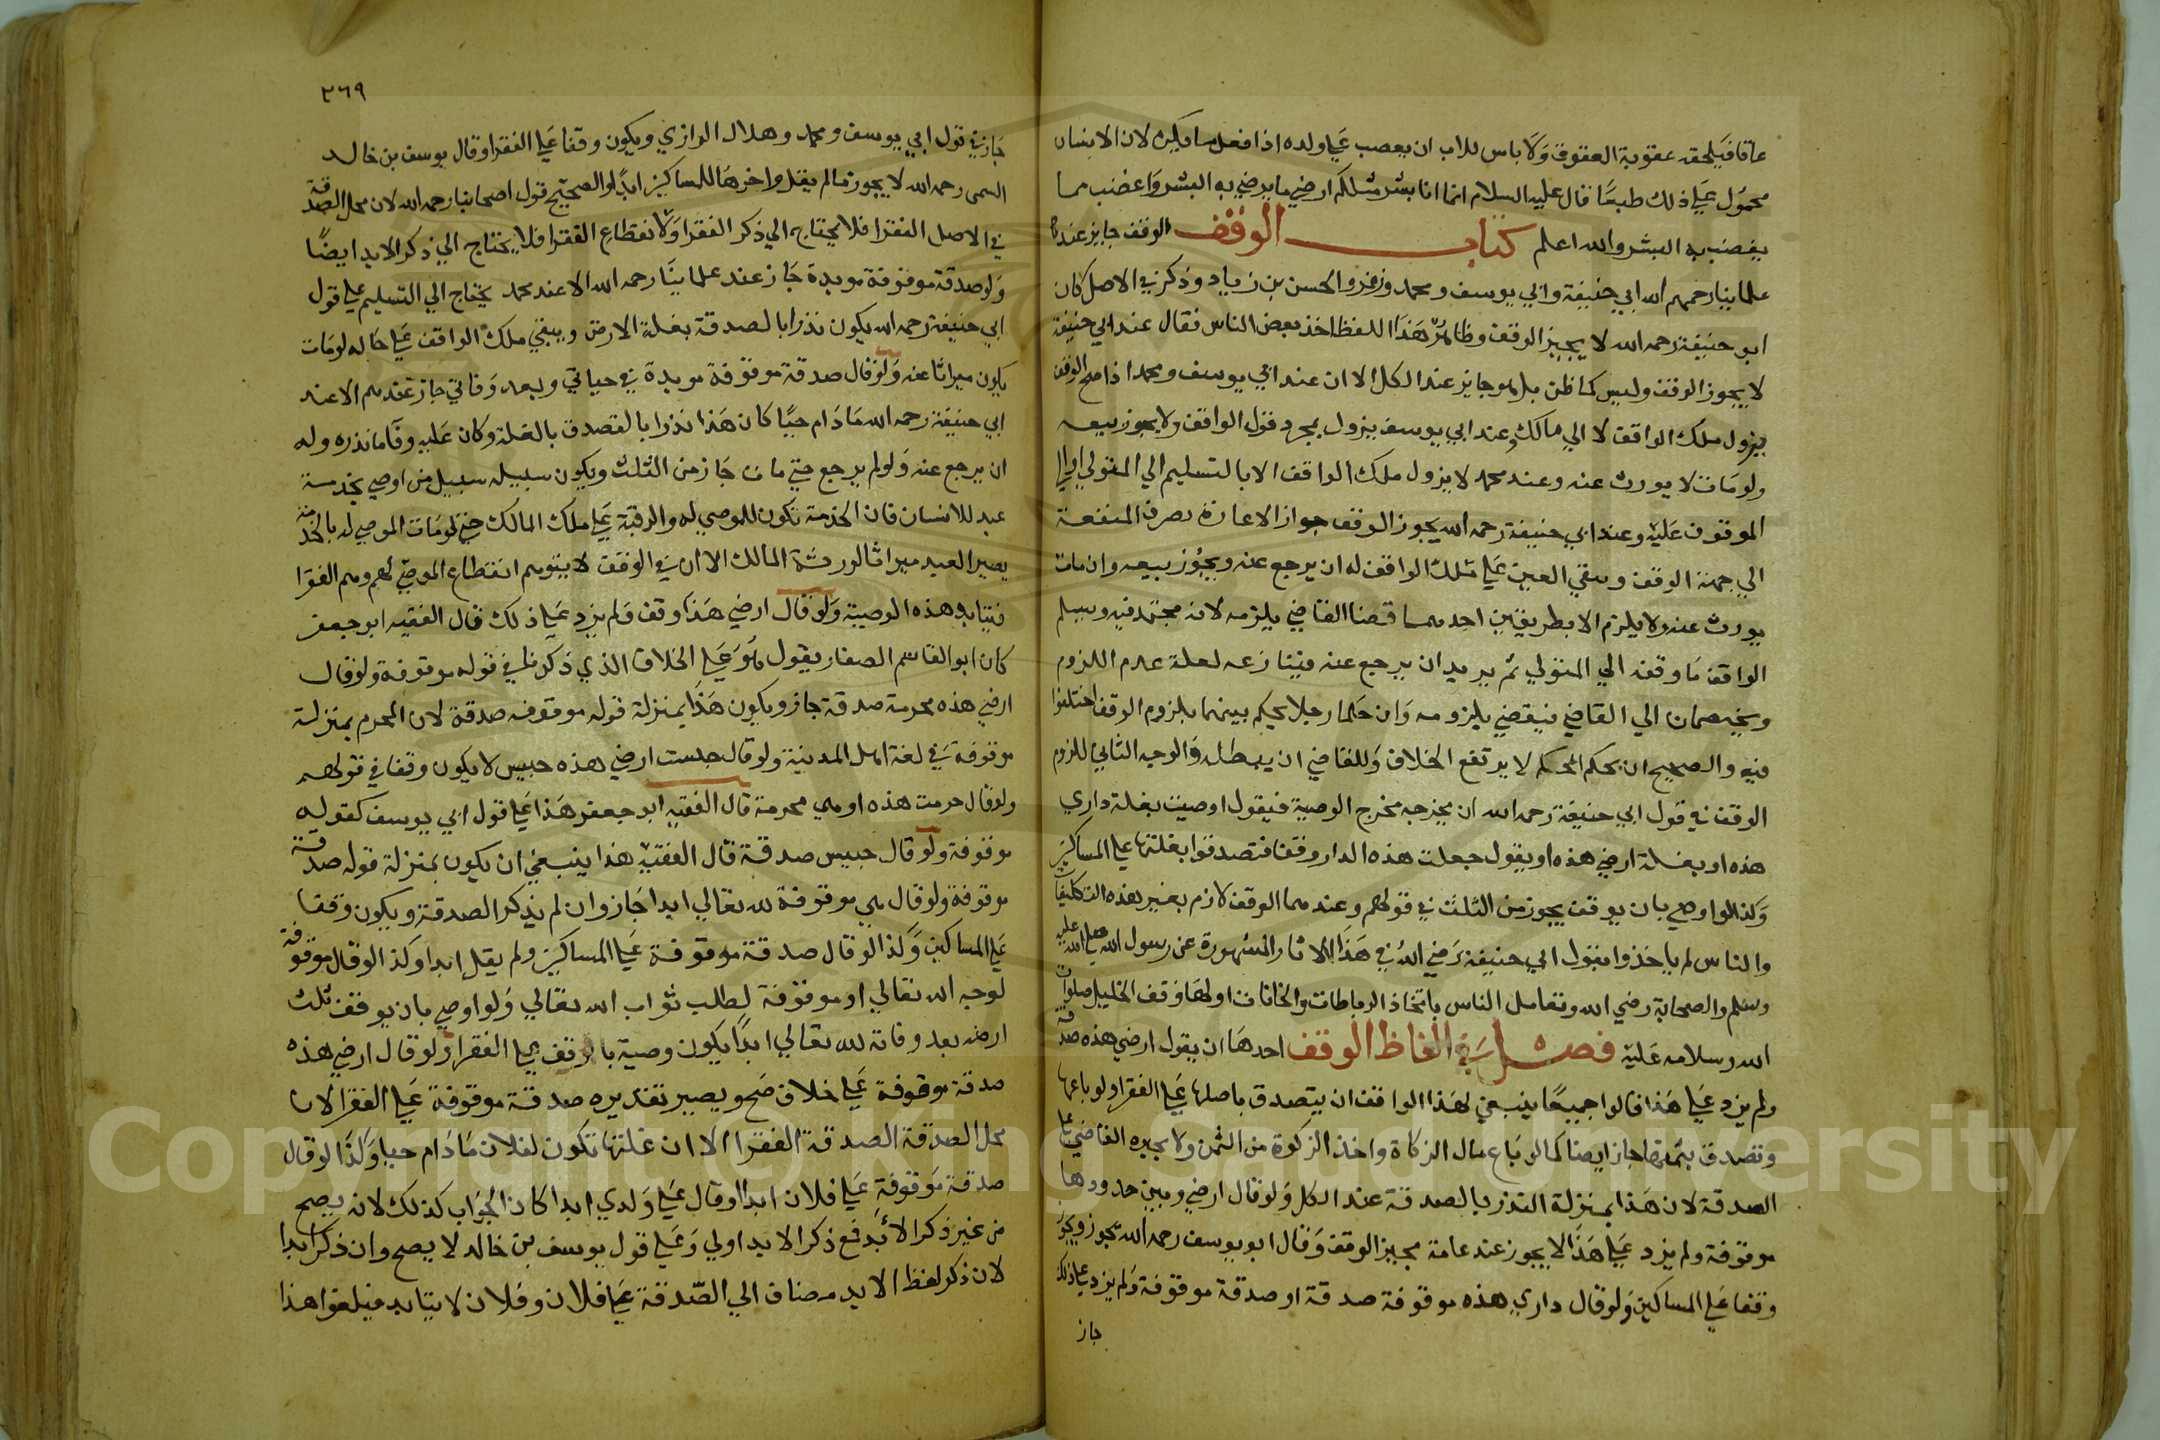 عاقا فيلحقه عقوبة العقوق ولا باس للاب ان يغضب علي ولده اذا فعل ما يكره لان الانسان
محمول علي ذلك طبعا قال عليه السلام انما انا بشر مثلكم ارضي ما يرضي به البشر واغضب مما
يغضب به البشر والله اعلم كتاب الوقف الوقف جايز عند
علماينا رحمهم الله ابي حنيفة وابي يوسف ومحمد وزفر والحسن بن زياد وذكر في الاصل كان
ابو حنيفة رحمه الله لا يجيز الوقف وظاهر هذا اللفظ اخذ بعض الناس فقال عند ابي حنيفة
لا يجوز الوقف وليس كما ظن بل هو جايز عند الكل الا ان عند ابي يوسف ومحمد اذا صح الوقف
يزول ملك الواقف لا الي مالك وعند ابي يوسف يزول بمجرد قول الواقف ولا يجوز بيعه
ولو مات لا يورث عنه وعند محمد لا يزول ملك الواقف الا بالتسليم الي المتولي او الي
الموقوف عليه وعند ابي حنيفة رحمه الله يجوز الوقف جواز الاعارة تصرف المنفعة
الي جهة الوقف وتبقي العين علي ملك الواقف له ان يرجع عنه ويجوز بيعه وان مات
يورث عنه ولا يلزم الا بطريقين احدهما قضا القاضي يلزمه لانه مجتهد فيه ويسلم
الواقف ما وقفه الي المتولي ثم يريد ان يرجع عنه فينازعه لعلة عدم اللزوم
ويختصمان الي القاضي فيقضي بلزومه وان حكما رجلا يحكم بينهما بلزوم الوقف اختلفوا
فيه والصحيح ان بحكم المحكم لا يرتفع الخلاف وللقاضي ان يبطله والوجه الثاني للزوم
الوقف في قول ابي حنيفة رحمه الله ان يخرجه مخرج الوصية فيقول اوصيت بغلة داري
هذه او بغلة ارضي هذه او يقول جعلت هذه الدار وقفا فتصدقوا بغلتها علي المساكين
وكذا لو اوصي بان يوقف يجوز من الثلث في قولهم وعندهما الوقف لازم بغير هذه التكليفات
والناس لم ياخذوا بقول ابي حنيفة رضي الله في هذا للاثار المشهورة عن رسول الله صلي الله عليه
وسلم والصحابة رضي الله وتعامل الناس باتخاذ الرباطات والخانات اولها وقف الخليل صلوات
الله وسلامه عليه فصل في الفاظ الوقف احدها ان يقول ارضي هذه صدقة
ولم يزد علي هذا قالوا جميعا ينبغي لهذا الواقف ان يتصدق باصلها علي الفقرا ولو باعها
وتصدق بثمنها جاز ايضا كما لو باع مال الزكاة واخذ الزكوة من الثمن ولا يجبره القاضي علي
الصدقة لان هذا بمنزلة النذر بالصدقة عند الكل ولو قال ارضي وبين حدودها
موقوفة ولم يزد علي هذا لا يجوز عند عامة مجيز الوقف وقال ابو يوسف رحمه الله يجوز ويكون
وقفا علي المساكين ولو قال داري هذه موقوفة صدقة او صدقة موقوفة ولم يزد علي ذلك
جاز
٣٦٩
جاز في قول ابي يوسف ومحمد وهلال الرازي ويكون وقفا علي الفقرا وقال يوسف بن خالد
السمي رحمه الله لا يجوز ما لم يقل واخرها للمساكين ابدا والصحيح قول اصحابنا رحمه الله لان محل الصدقة
في الاصل الفقرا فلا يحتاج الي ذكر الفقرا ولا انقطاع الفقرا فلا يحتاج الي ذكر الابد ايضا
ولو صدقة موقوفة موبدة جاز عند علماينا رحمه الله الا عند محمد يحتاج الي التسليم علي قول
ابي حنيفة رحمه الله يكون نذرا بالصدقة بغلة الارض ويبقي ملك الواقف علي حاله لو مات
يكون ميراثا عنه ولو قال صدقة موقوفة موبدة في حياتي وبعد وفاتي جاز عندهم الا عند
ابي حنيفة رحمه الله ما دام حيا كان هذا نذرا بالتصدق بالغلة وكان عليه وفا ما نذره وله
ان يرجع عنه ولو لم يرجع حتي مات جاز من الثلث ويكون سبيله سبيل من اوصي بخدمة
عبد للانسان فان الخدمة تكون للموصي له والرقبة علي ملك المالك حتي لو مات الموصي له بالخدمة
يصير العبد ميراثا لورثة المالك الا ان في الوقف لا يتوهم انقطاع الموصي لهم وهم الفقرا
فيتابد هذه الوصية ولو قال ارضي هذا وقف ولم يزد علي ذلك قال الفقيه ابو جعفر
كان ابو القاسم الصفار يقول هو علي الخلاف الذي ذكرنا في قوله موقوفة ولو قال
ارضي هذه محرمة صدقة جاز ويكون هذا بمنزلة قوله موقوفه صدقة لان المحرم بمنزلة
موقوفة في لغة اهل المدينة ولو قال حبست ارضي هذه حبيس لا يكون وقفا في قولهم
ولو قال حرمت هذه او هي محرمة قال الفقيه ابو جعفر هذا علي قول ابي يوسف كقوله
موقوفة ولو قال حبيس صدقة قال الفقيه هذا ينبغي ان يكون بمنزلة قوله صدقة
موقوفة ولو قال هي موقوفة لله تعالي ابدا جاز وان لم يذكر الصدقة ويكون وقفا
علي المساكين وكذا لو قال صدقة موقوفة علي المساكين ولم يقل ابدا وكذا لو قال موقوفة
لوجه الله تعالي او موقوفة لطلب ثواب الله تعالي ولو اوصي بان يوقف ثلث
ارضه بعد وفاته لله تعالي ابدا يكون وصية بالوقف علي الفقرا ولو قال ارضي هذه
صدقة موقوفة علي خلاف صح ويصير تقديره صدقة موقوفة علي الفقرا لان
محل الصدقة الصدقة الفقرا الا ان غلتها تكون لفلان ما دام حيا وكذا لو قال
صدقة موقوفة علي فلان ابدا او قال علي ولدي ابدا كان الجواب كذلك لانه يصح
من غير ذكر الابد فمع ذكر الابد اولي وعلي قول يوسف بن خالد لا يصح وان ذكر ابدا
لان ذكر لفظ الابد مضاف الي الصدقة علي فلان وفلان لا يتابد فيلغوا هذا
Copyright © King Saud University